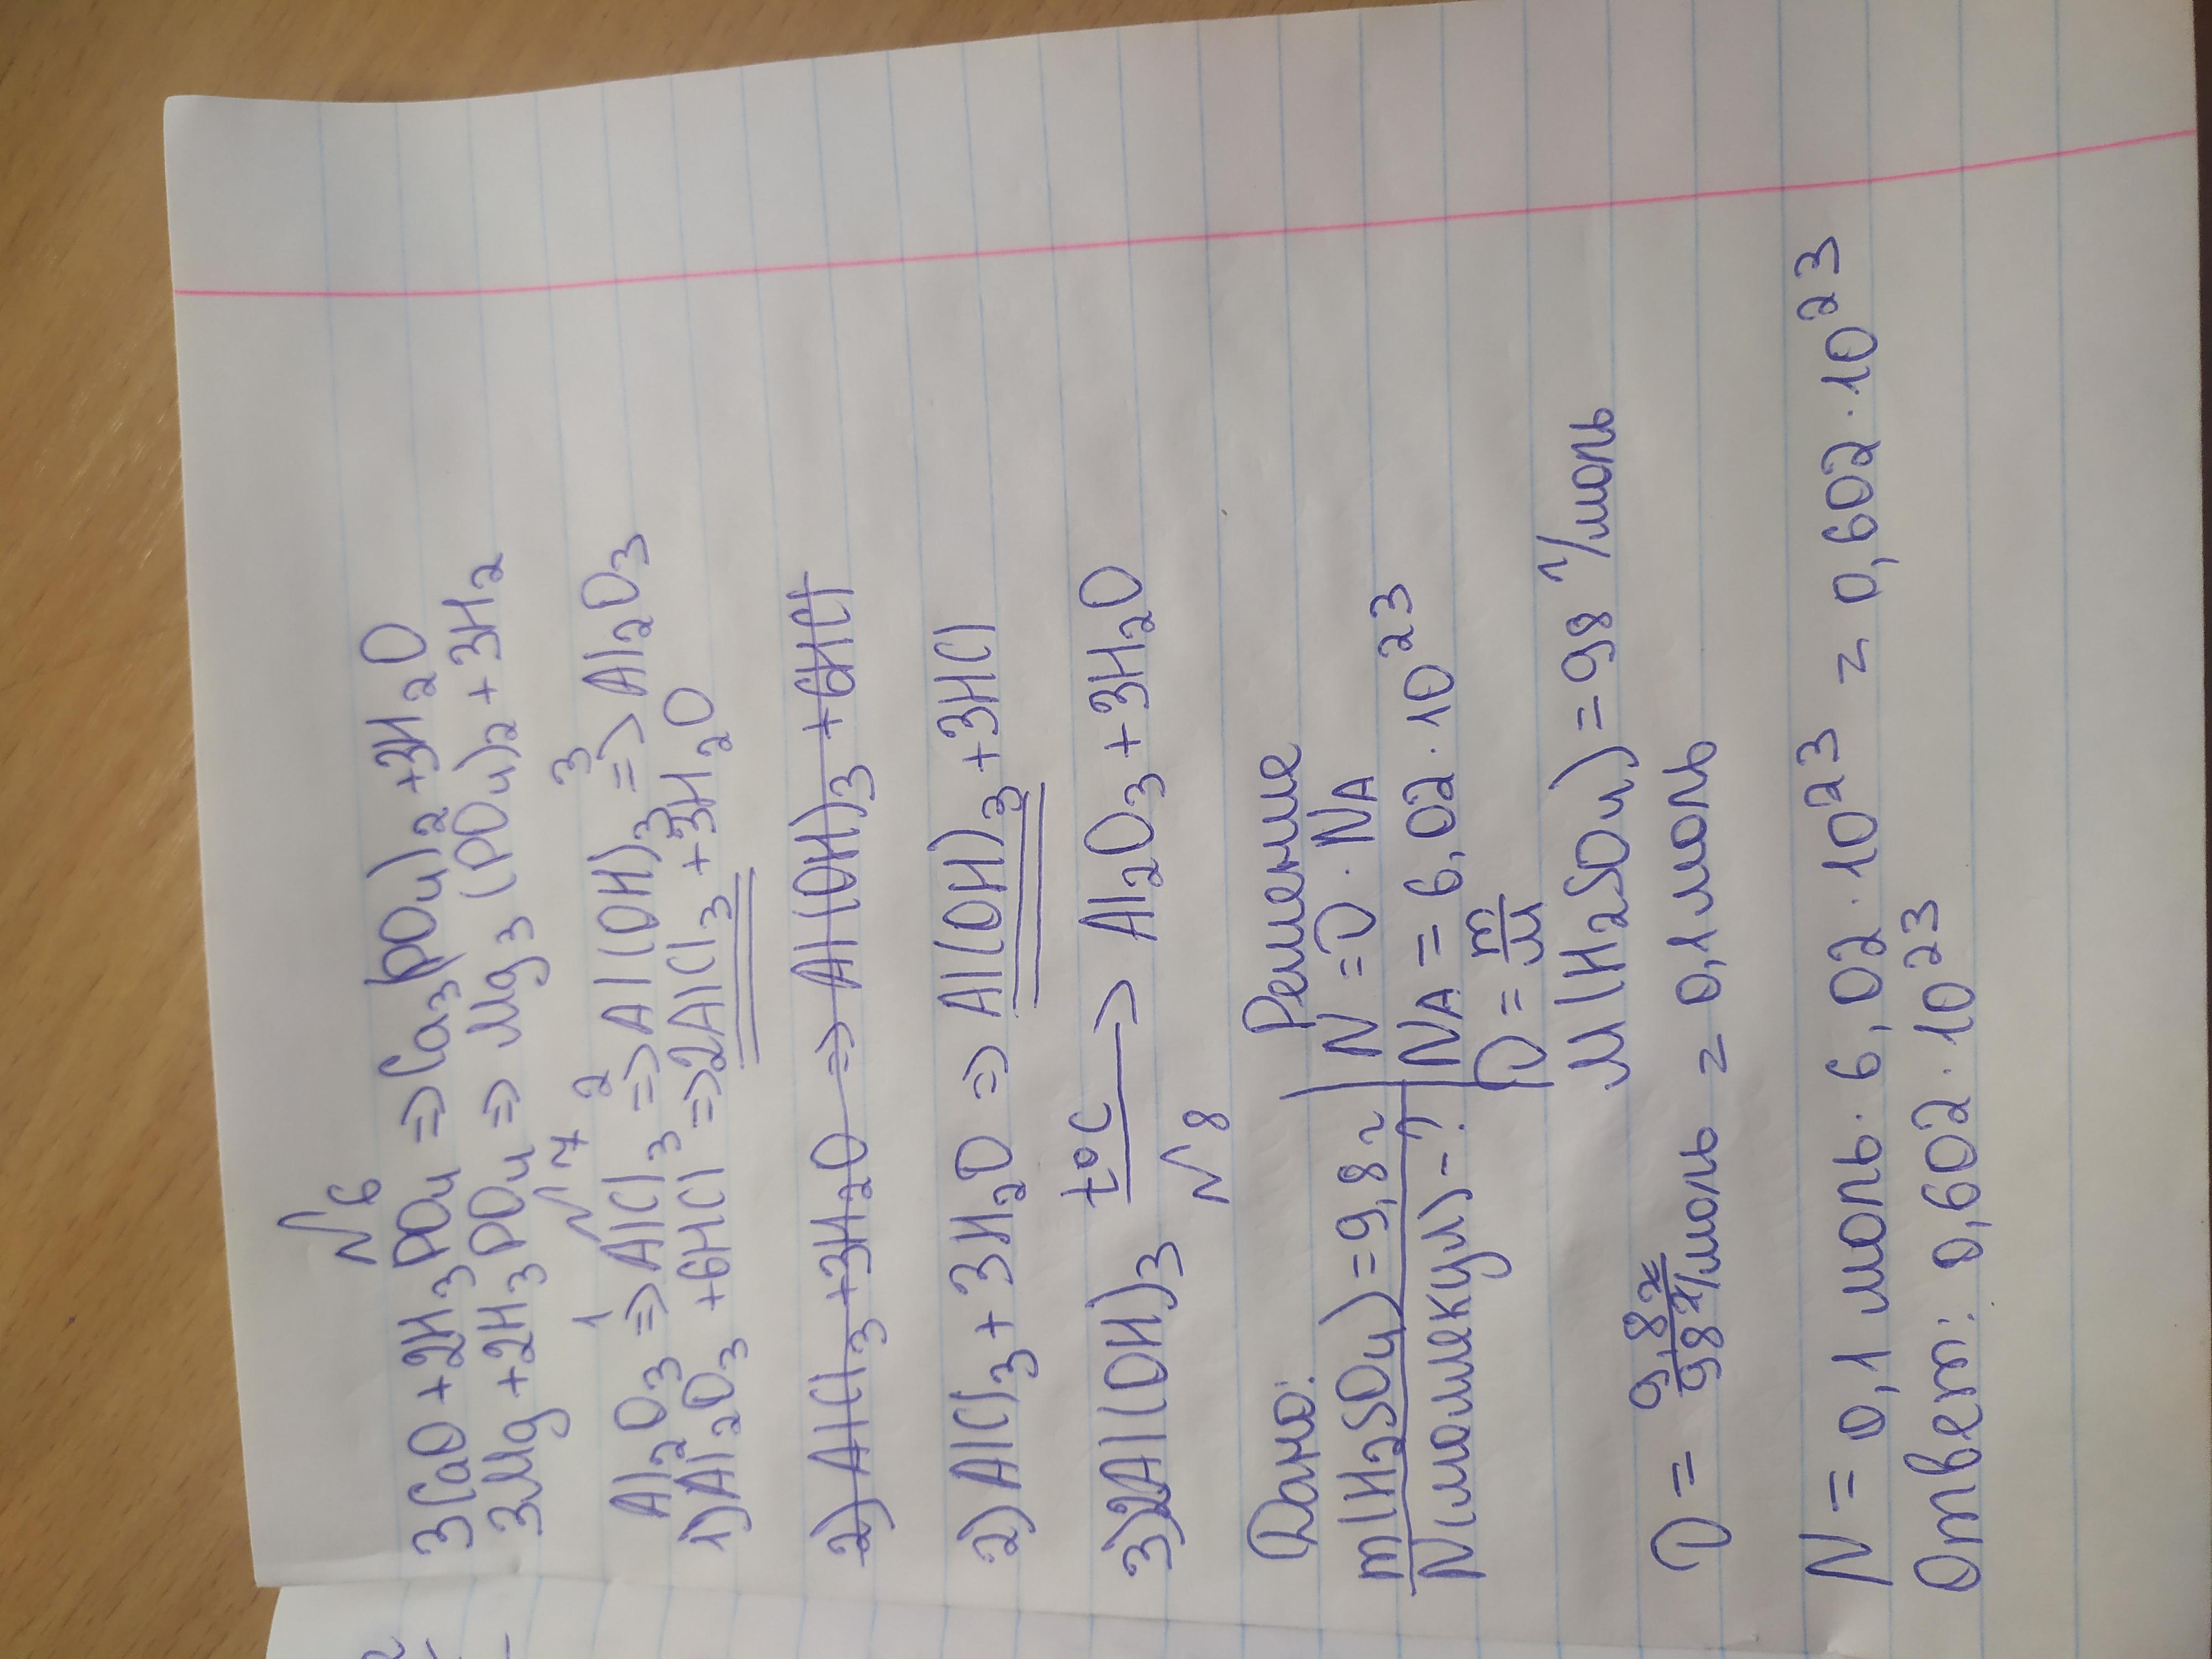 №6
3CaO + 2H₃PO₄ => Ca₃(PO₄)₂ + 3H₂O
3Mg + 2H₃PO₄ => Mg₃(PO₄)₂ + 3H₂
№7
Al₂O₃ =>¹ AlCl₃ =>² Al(OH)₃ =>³ Al₂O₃
1) Al₂O₃ + 6HCl => 2AlCl₃ + 3H₂O
2) AlCl₃ + 3H₂O => Al(OH)₃ + 6HCl
2) AlCl₃ + 3H₂O => Al(OH)₃ + 3HCl
3) 2Al(OH)₃ t°C → Al₂O₃ + 3H₂O
№8
Дано: Решение
m(H₂SO₄) = 9,8г N = υ · NA
N(молекул) - ? NA = 6,02 · 10²³
υ = m/M
M(H₂SO₄) = 98 г/моль
υ = 9,8г / 98 г/моль = 0,1 моль
N = 0,1 моль · 6,02 · 10²³ = 0,602 · 10²³
Ответ: 0,602 · 10²³